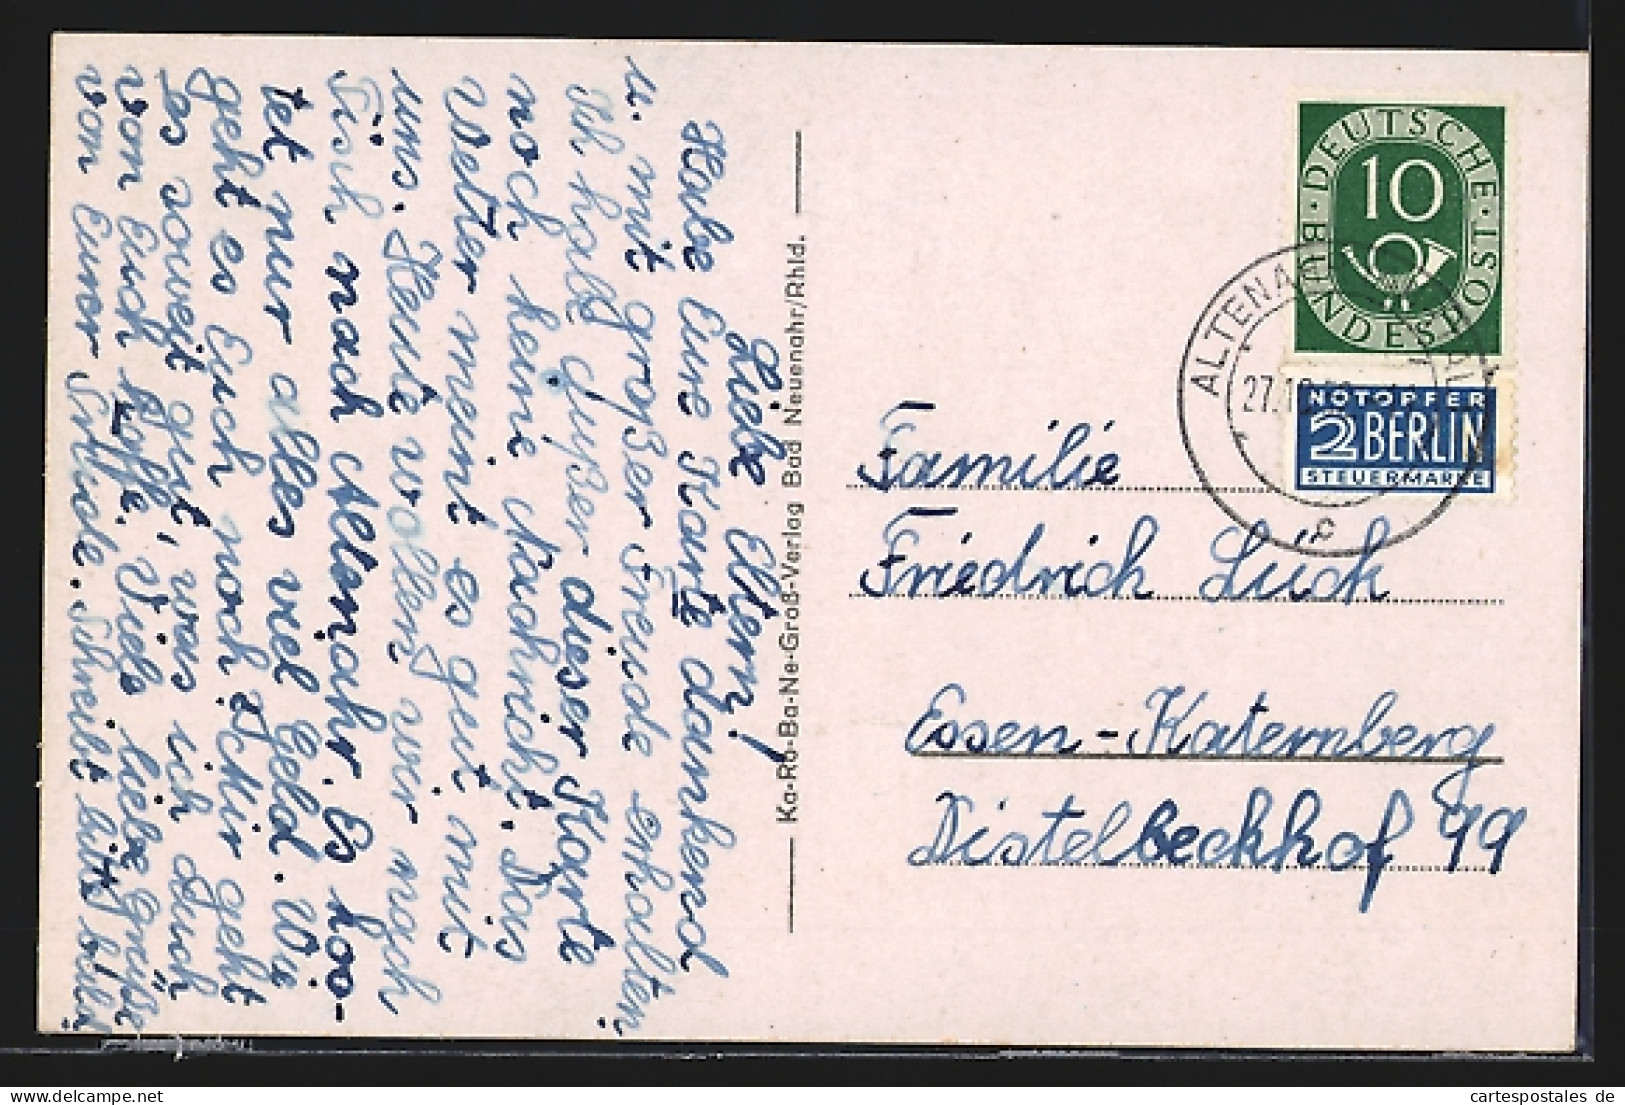 Liebe Eltern!
Habe Eure Karte dankend
u. mit großer Freude erhalten
Ich habe außer dieser Karte
noch keine Nachricht. Das
Wetter meint es gut mit
uns. Heute wollen wir noch
Fisch nach Altenahr. Es koo-
tet nur alles viel Geld. Wie
geht es Euch noch? Mir geht
es soweit gut, was ich auch
von Euch hoffe. Viele liebe Grüße
von Eurer Schreibt bitte bald
Ka-Ro-Ba-Ne-Groß-Verlag Bad Neuenahr/Rhld.
DEUTSCHE BUNDESPOST
10
NOTOPFER
2 BERLIN
STEUERMARKE
ALTENA
27.10.
c
Familie
Friedrich Lück
Essen-Katernberg
Distelbeckhof 99
www.delcampe.net
cartespostales de